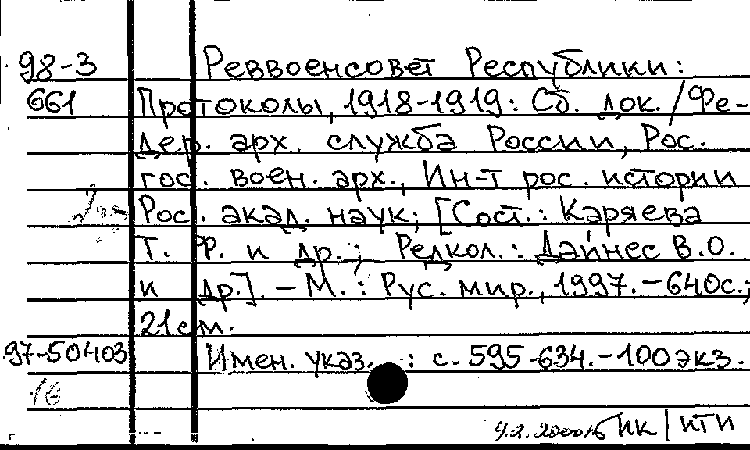 98-3 Реввоенсовет Республики:
661 Протоколы, 1918-1919: Сб. док. / Фе-
дер. арх. служба России, Рос.
гос. воен. арх., Ин-т рос. истории
Рос. акад. наук; [Сост.: Каряева
Т. Ф. и др.; Редкол.: Дайнес В.О.
и др]. - М.: Рус. мир., 1997. - 640с.;
21см.
97-50403 Имен. указ. : с. 595-634. - 100экз.
1б
ПК | ИТИ